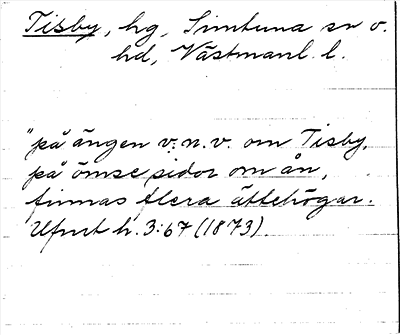 Tisby, hg, Simtuna sn o.
hd, Västmanl. l.
"på ängen v.n.v. om Tisby,
på ömse sidor om ån,
finnas flera ättehögar.
Upmt h. 3:67 (1873).